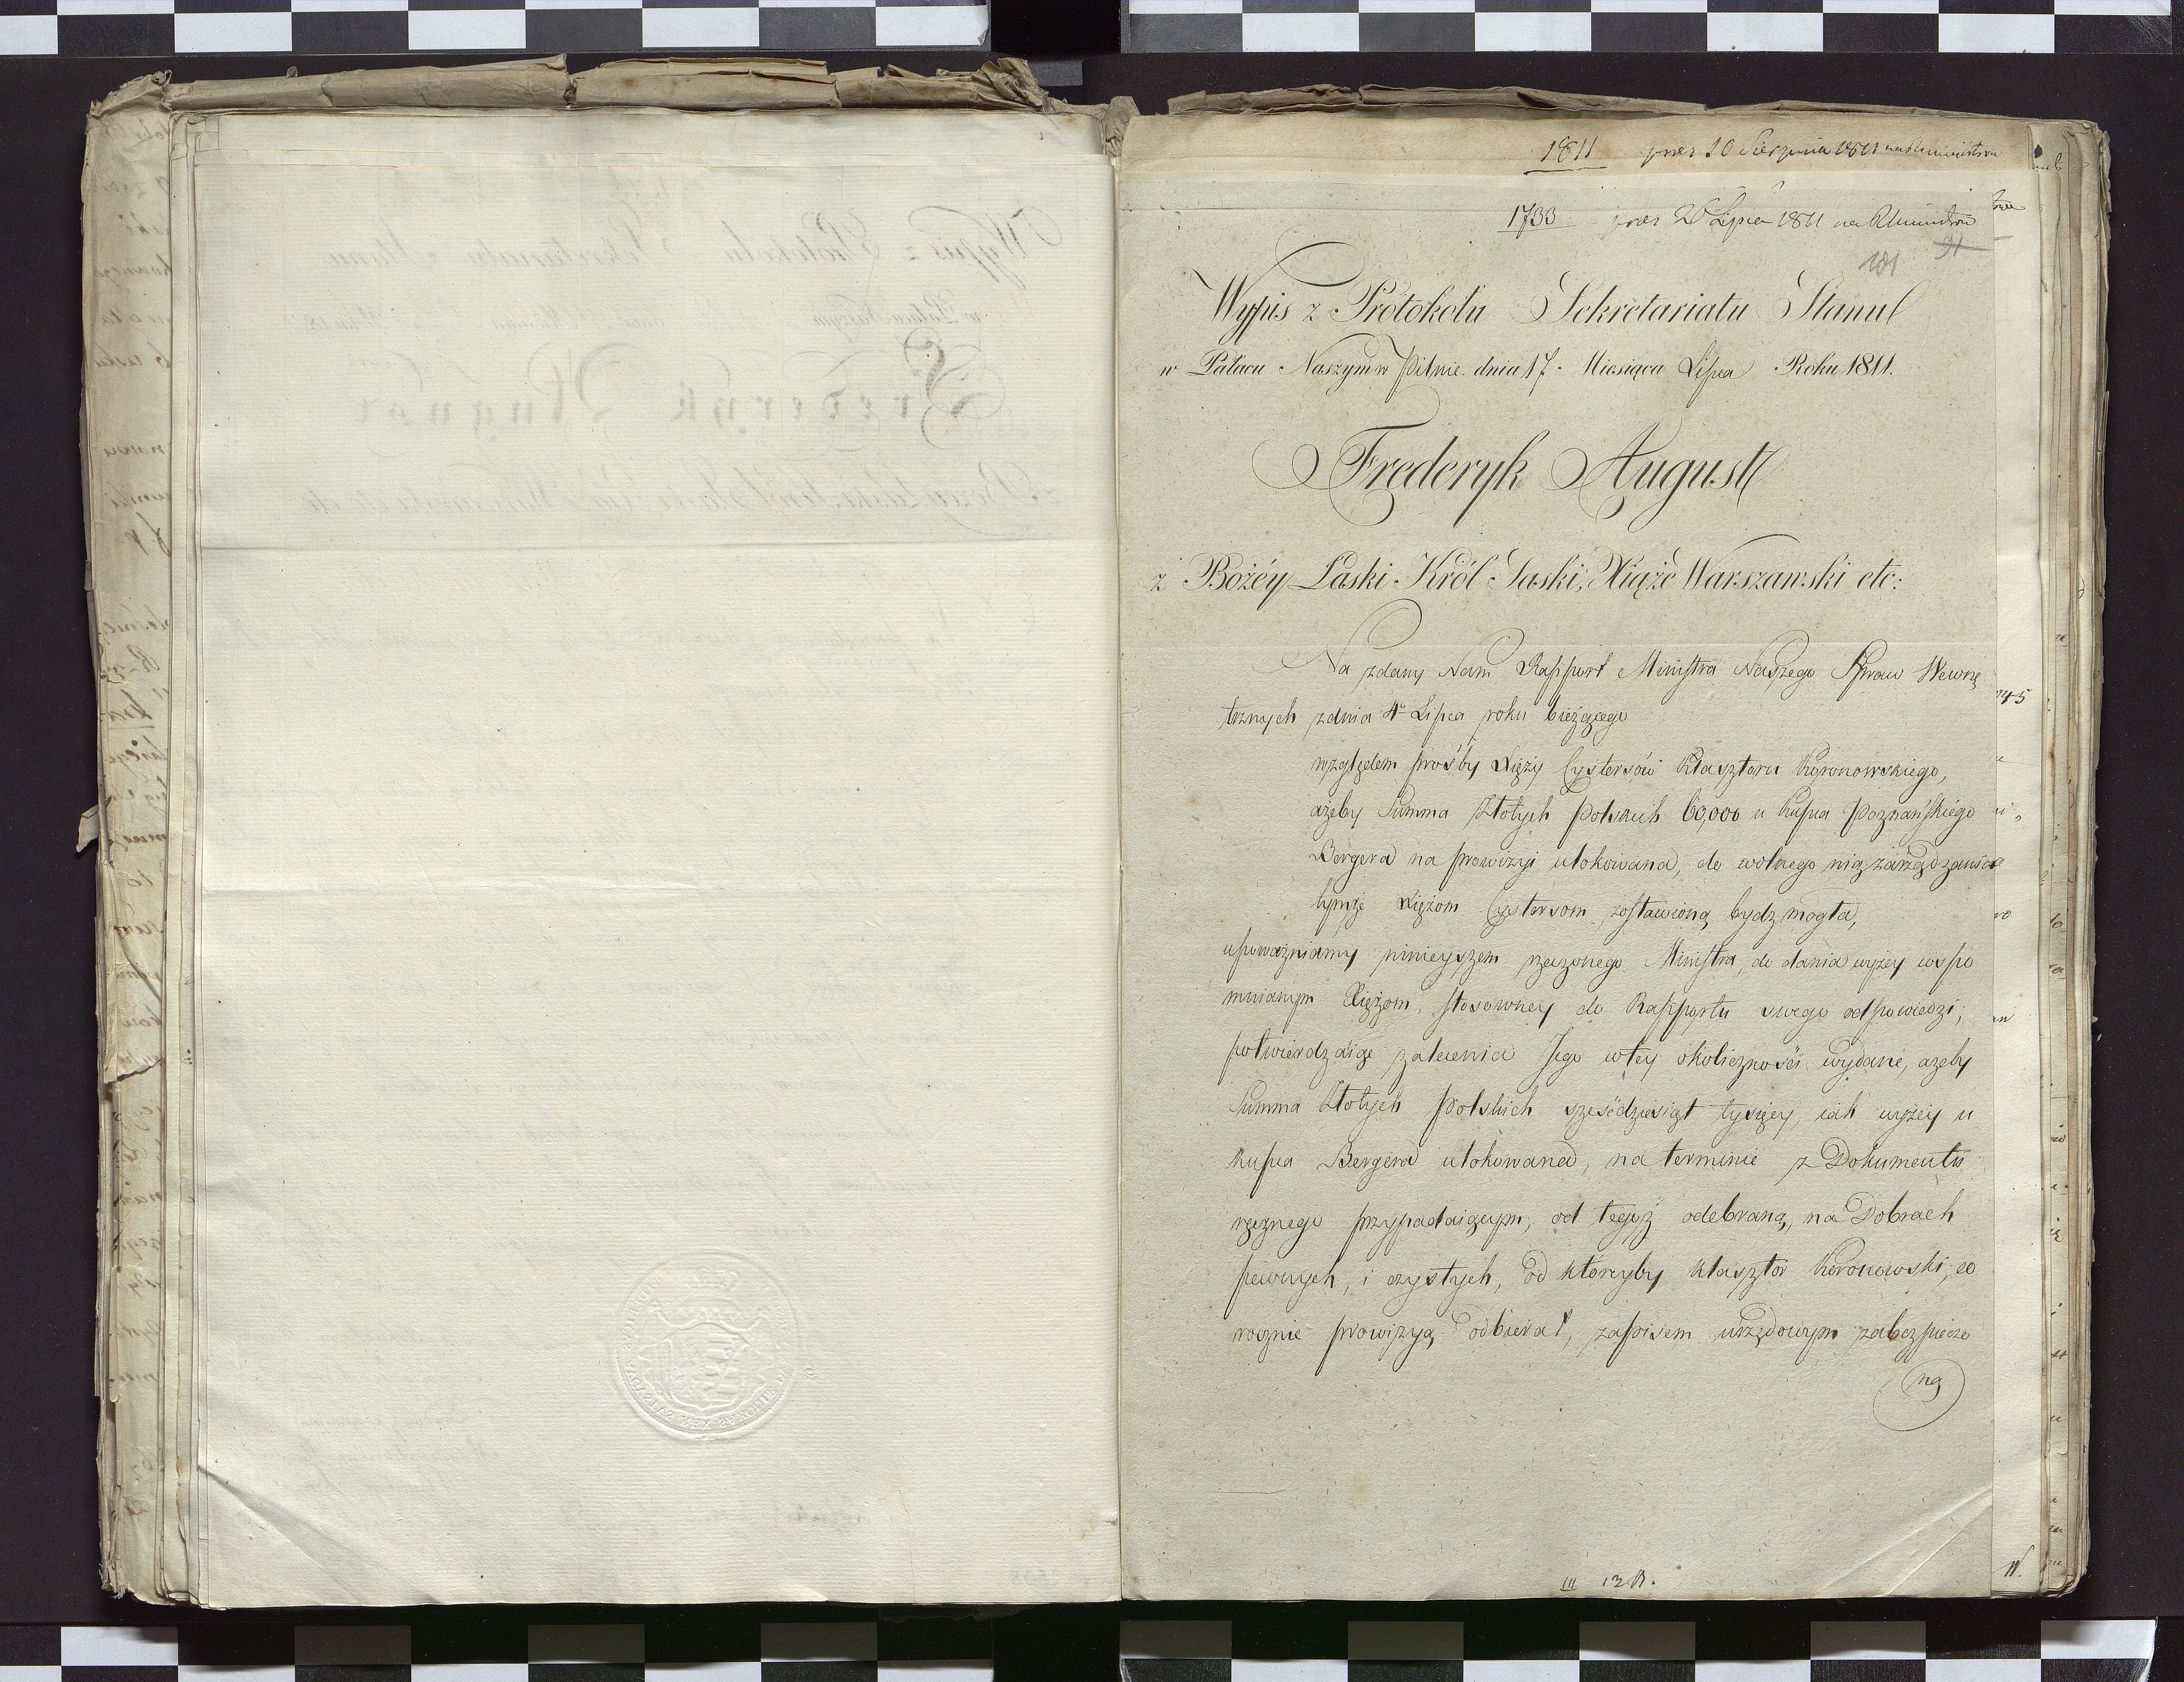 1811 prez 10 Sierpnia 1811 na Administra
1733 prez 26 Lipca 1811 na Administra
91
181
Wypis z Protokołu Sekretariatu Stanu
w Pałacu Naszym w Pilnie. dnia 17. Miesiąca Lipca Roku 1811.
Frederyk August
z Bożéy Łaski Król Saski, Xiąże Warszawski etc:
Na zdany Nam Rapport Ministra Naszego Spraw Wewnę
trznych z dnia 4º Lipca roku bieżącego
względem prośby Xięży Cystersów Klasztoru Koronowskiego,
ażeby Summa Złotych Polskich 60,000 u Kupca Poznańskiego
Bergera na prowizyi ulokowana, do wolnego nią zarządzania
tymże Xiężom Cystersom zostawioną bydz mogła,
upoważniamy ninieyszem rzeczonego Ministra, do dania wyżey wspo
mnianym Xiężom, stosowney do Rapportu swego odpowiedzi,
potwierdzaiąc zalecenia Jego w tey okoliczności wydane, ażeby
Summa Złotych Polskich sześćdziesiąt tysięcy, iak wyżey u
Kupca Bergera ulokowana, na terminie z Dokumentu
ręcznego przypadaiącym, od tegoż odebraną, na Dobrach
pewnych, i czystych, od któreyby Klasztor Koronowski, co
rocznie prowizyą odbierał, zapisem urzędowym zabezpieczo
ną
III 12 B.